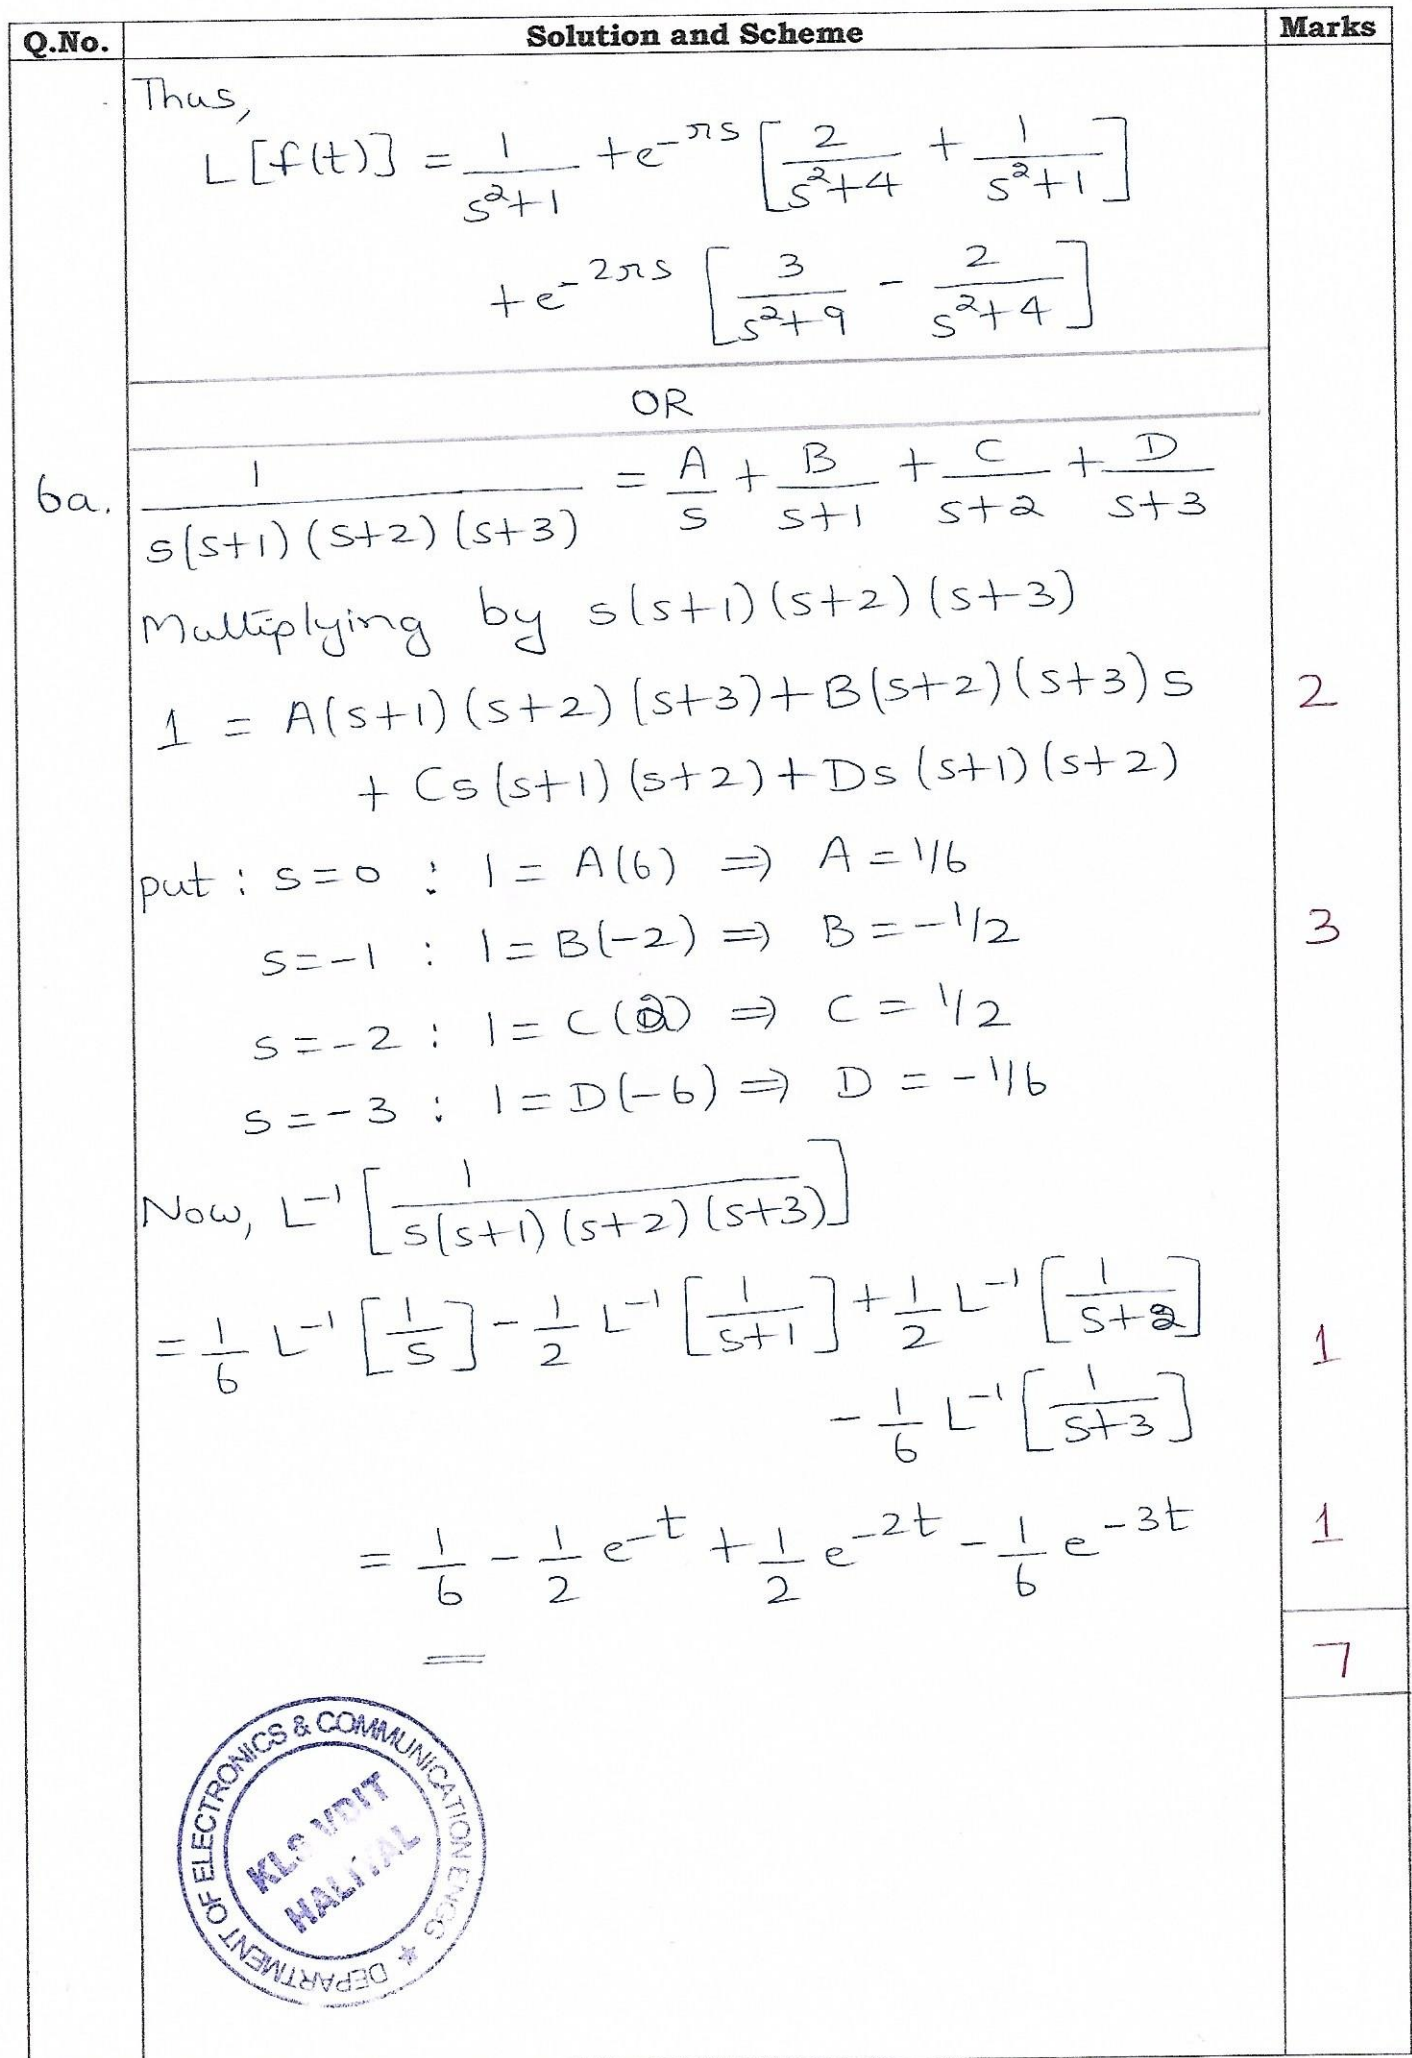 Q.No. Solution and Scheme Marks
Thus,
L[f(t)] = 1/(s²+1) + e^(-πs) [2/(s²+4) + 1/(s²+1)]
+ e^(-2πs) [3/(s²+9) - 2/(s²+4)]
OR
6a. 1/(s(s+1)(s+2)(s+3)) = A/s + B/(s+1) + C/(s+2) + D/(s+3)
Multiplying by s(s+1)(s+2)(s+3)
1 = A(s+1)(s+2)(s+3)+B(s+2)(s+3)s 2
+ Cs(s+1)(s+2)+Ds(s+1)(s+2)
put : s=0 : 1 = A(6) ⇒ A = 1/6
s=-1 : 1=B(-2) ⇒ B = -1/2 3
s=-2 : 1= C(2) ⇒ C = 1/2
s=-3 : 1=D(-6) ⇒ D = -1/6
Now, L⁻¹ [1/(s(s+1)(s+2)(s+3))]
= 1/6 L⁻¹ [1/s] - 1/2 L⁻¹ [1/(s+1)] + 1/2 L⁻¹ [1/(s+2)] 1
- 1/6 L⁻¹ [1/(s+3)]
= 1/6 - 1/2 e^(-t) + 1/2 e^(-2t) - 1/6 e^(-3t) 1
7
DEPARTMENT OF ELECTRONICS & COMMUNICATION ENGG ★
KLS VDIT
HALIYAL